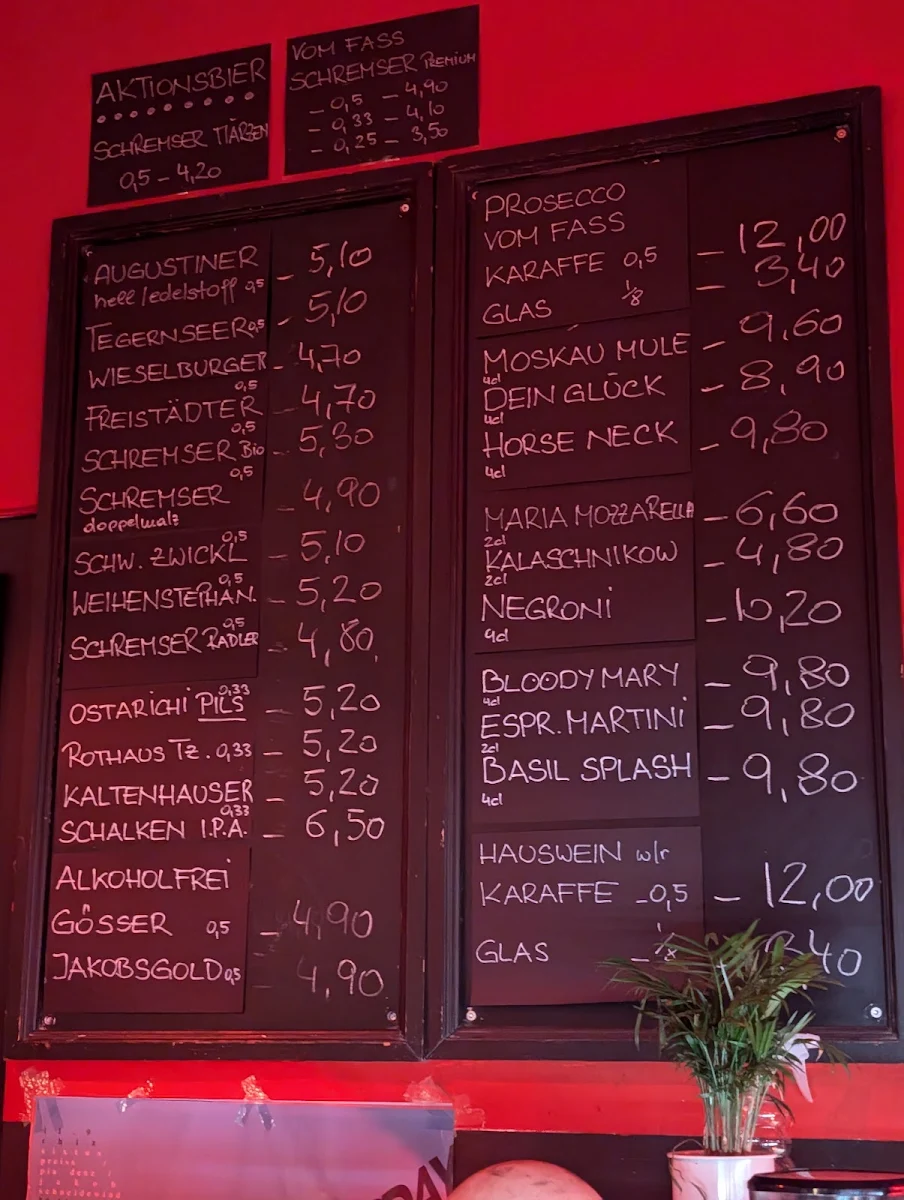 AKTIONSBIER
SCHREMSER MÄRZEN
0,5 – 4,20
VOM FASS
SCHREMSER PREMIUM
– 0,5 – 4,90
– 0,33 – 4,10
– 0,25 – 3,50
AUGUSTINER – 5,10
hell/edelstoff 0,5
TEGERNSEER 0,5 – 5,10
WIESELBURGER – 4,70
0,5
FREISTÄDTER – 4,70
0,5
SCHREMSER Bio – 5,30
0,5
SCHREMSER – 4,90
doppelmalz
0,5
SCHW. ZWICKL – 5,10
0,5
WEIHENSTEPHAN. – 5,20
0,5
SCHREMSER RADLER – 4,80
0,33
OSTARICHI PILS – 5,20
ROTHAUS TZ. 0,33 – 5,20
KALTENHAUSER – 5,20
0,33
SCHALKEN I.P.A. – 6,50
ALKOHOLFREI
GÖSSER 0,5 – 4,90
JAKOBSGOLD 0,5 – 4,90
PROSECCO
VOM FASS
KARAFFE 0,5 – 12,00
GLAS 1/8 – 3,40
MOSKAU MULE – 9,60
4cl
DEIN GLÜCK – 8,90
4cl
HORSE NECK – 9,80
4cl
MARIA MOZZARELLA – 6,60
2cl
KALASCHNIKOW – 4,80
2cl
NEGRONI – 10,20
9cl
BLOODY MARY – 9,80
4cl
ESPR. MARTINI – 9,80
2cl
BASIL SPLASH – 9,80
4cl
HAUSWEIN w/r
KARAFFE – 0,5 – 12,00
GLAS – 1/8 3,40